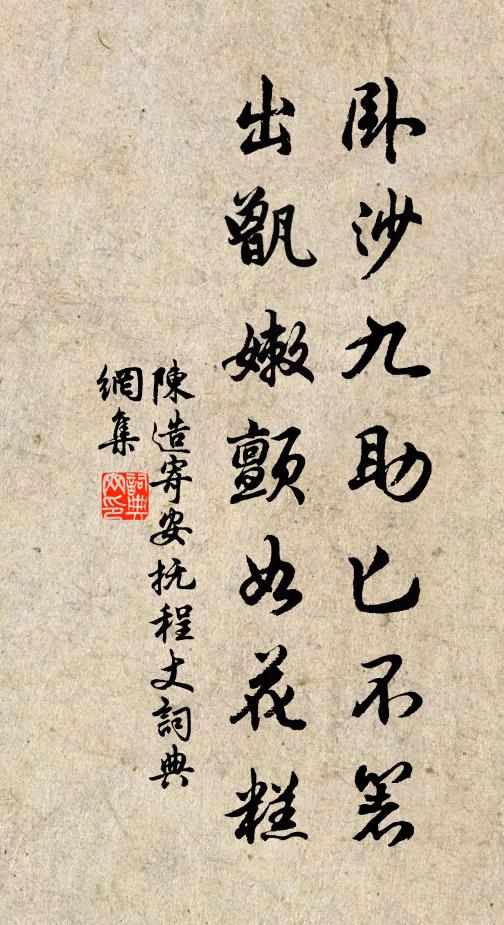 卧沙九助已不著
出甑嫩顫如花糕
陳造寄安抚程丈詞典
網集
詞典
网印